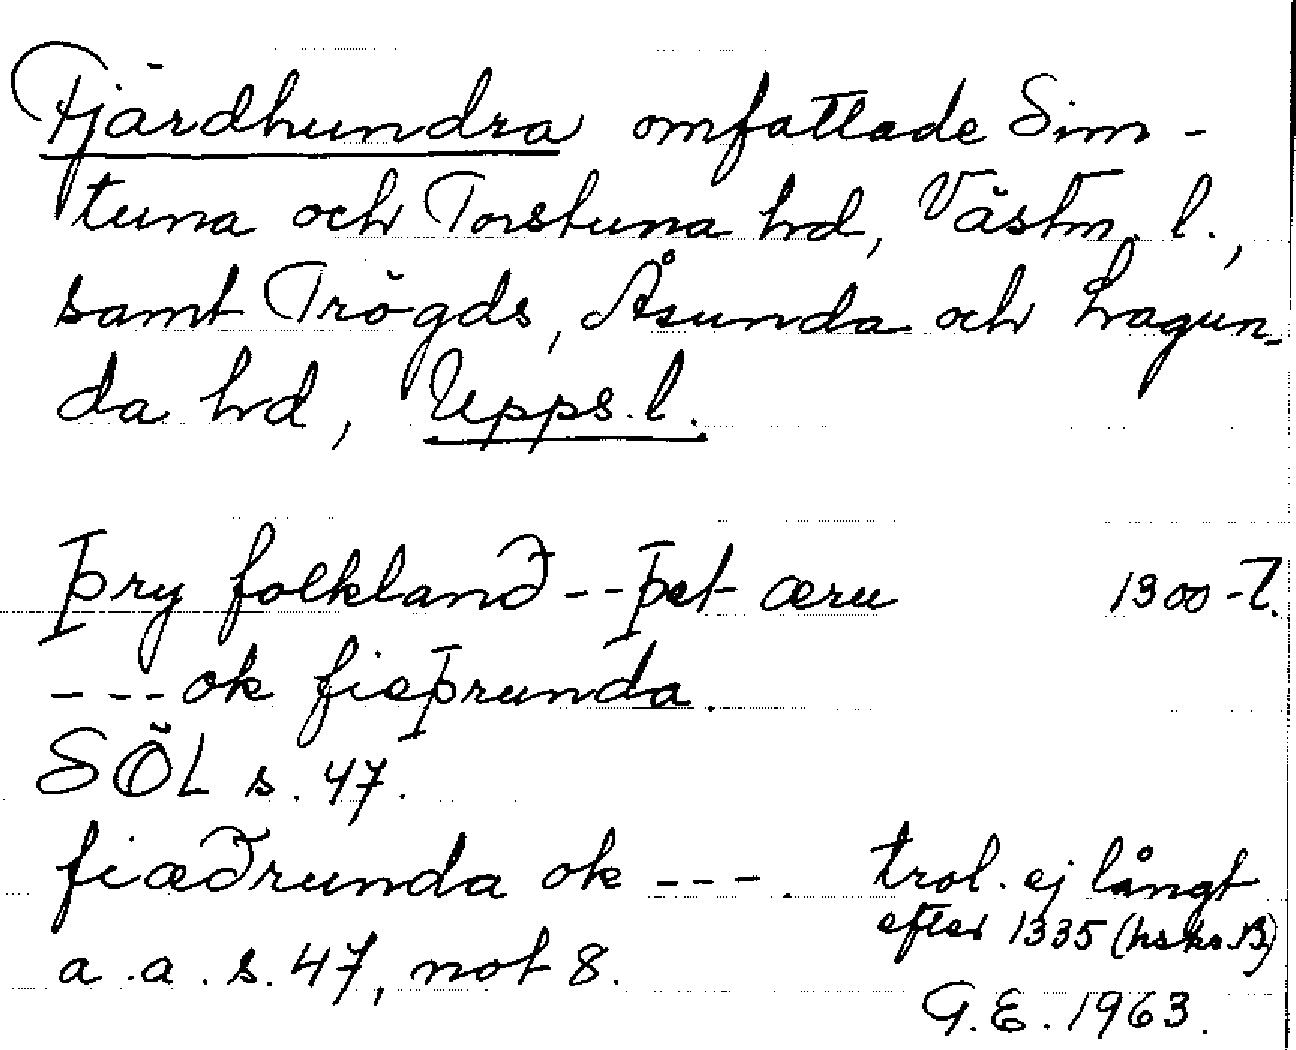 Fjärdhundra omfattade Sim-
tuna och Torstuna hd, Västm. l.,
samt Trögds, Åsunda och Lagun-
da hd, Upps. l.
Þry folkland -- þet æru 1300-t.
--- ok fieþrunda.
SÖL s. 47.
fiæðrunda ok ---. trol. ej långt
efter 1335 (hskr. B)
a. a. s. 47, not 8.
G. E. 1963.